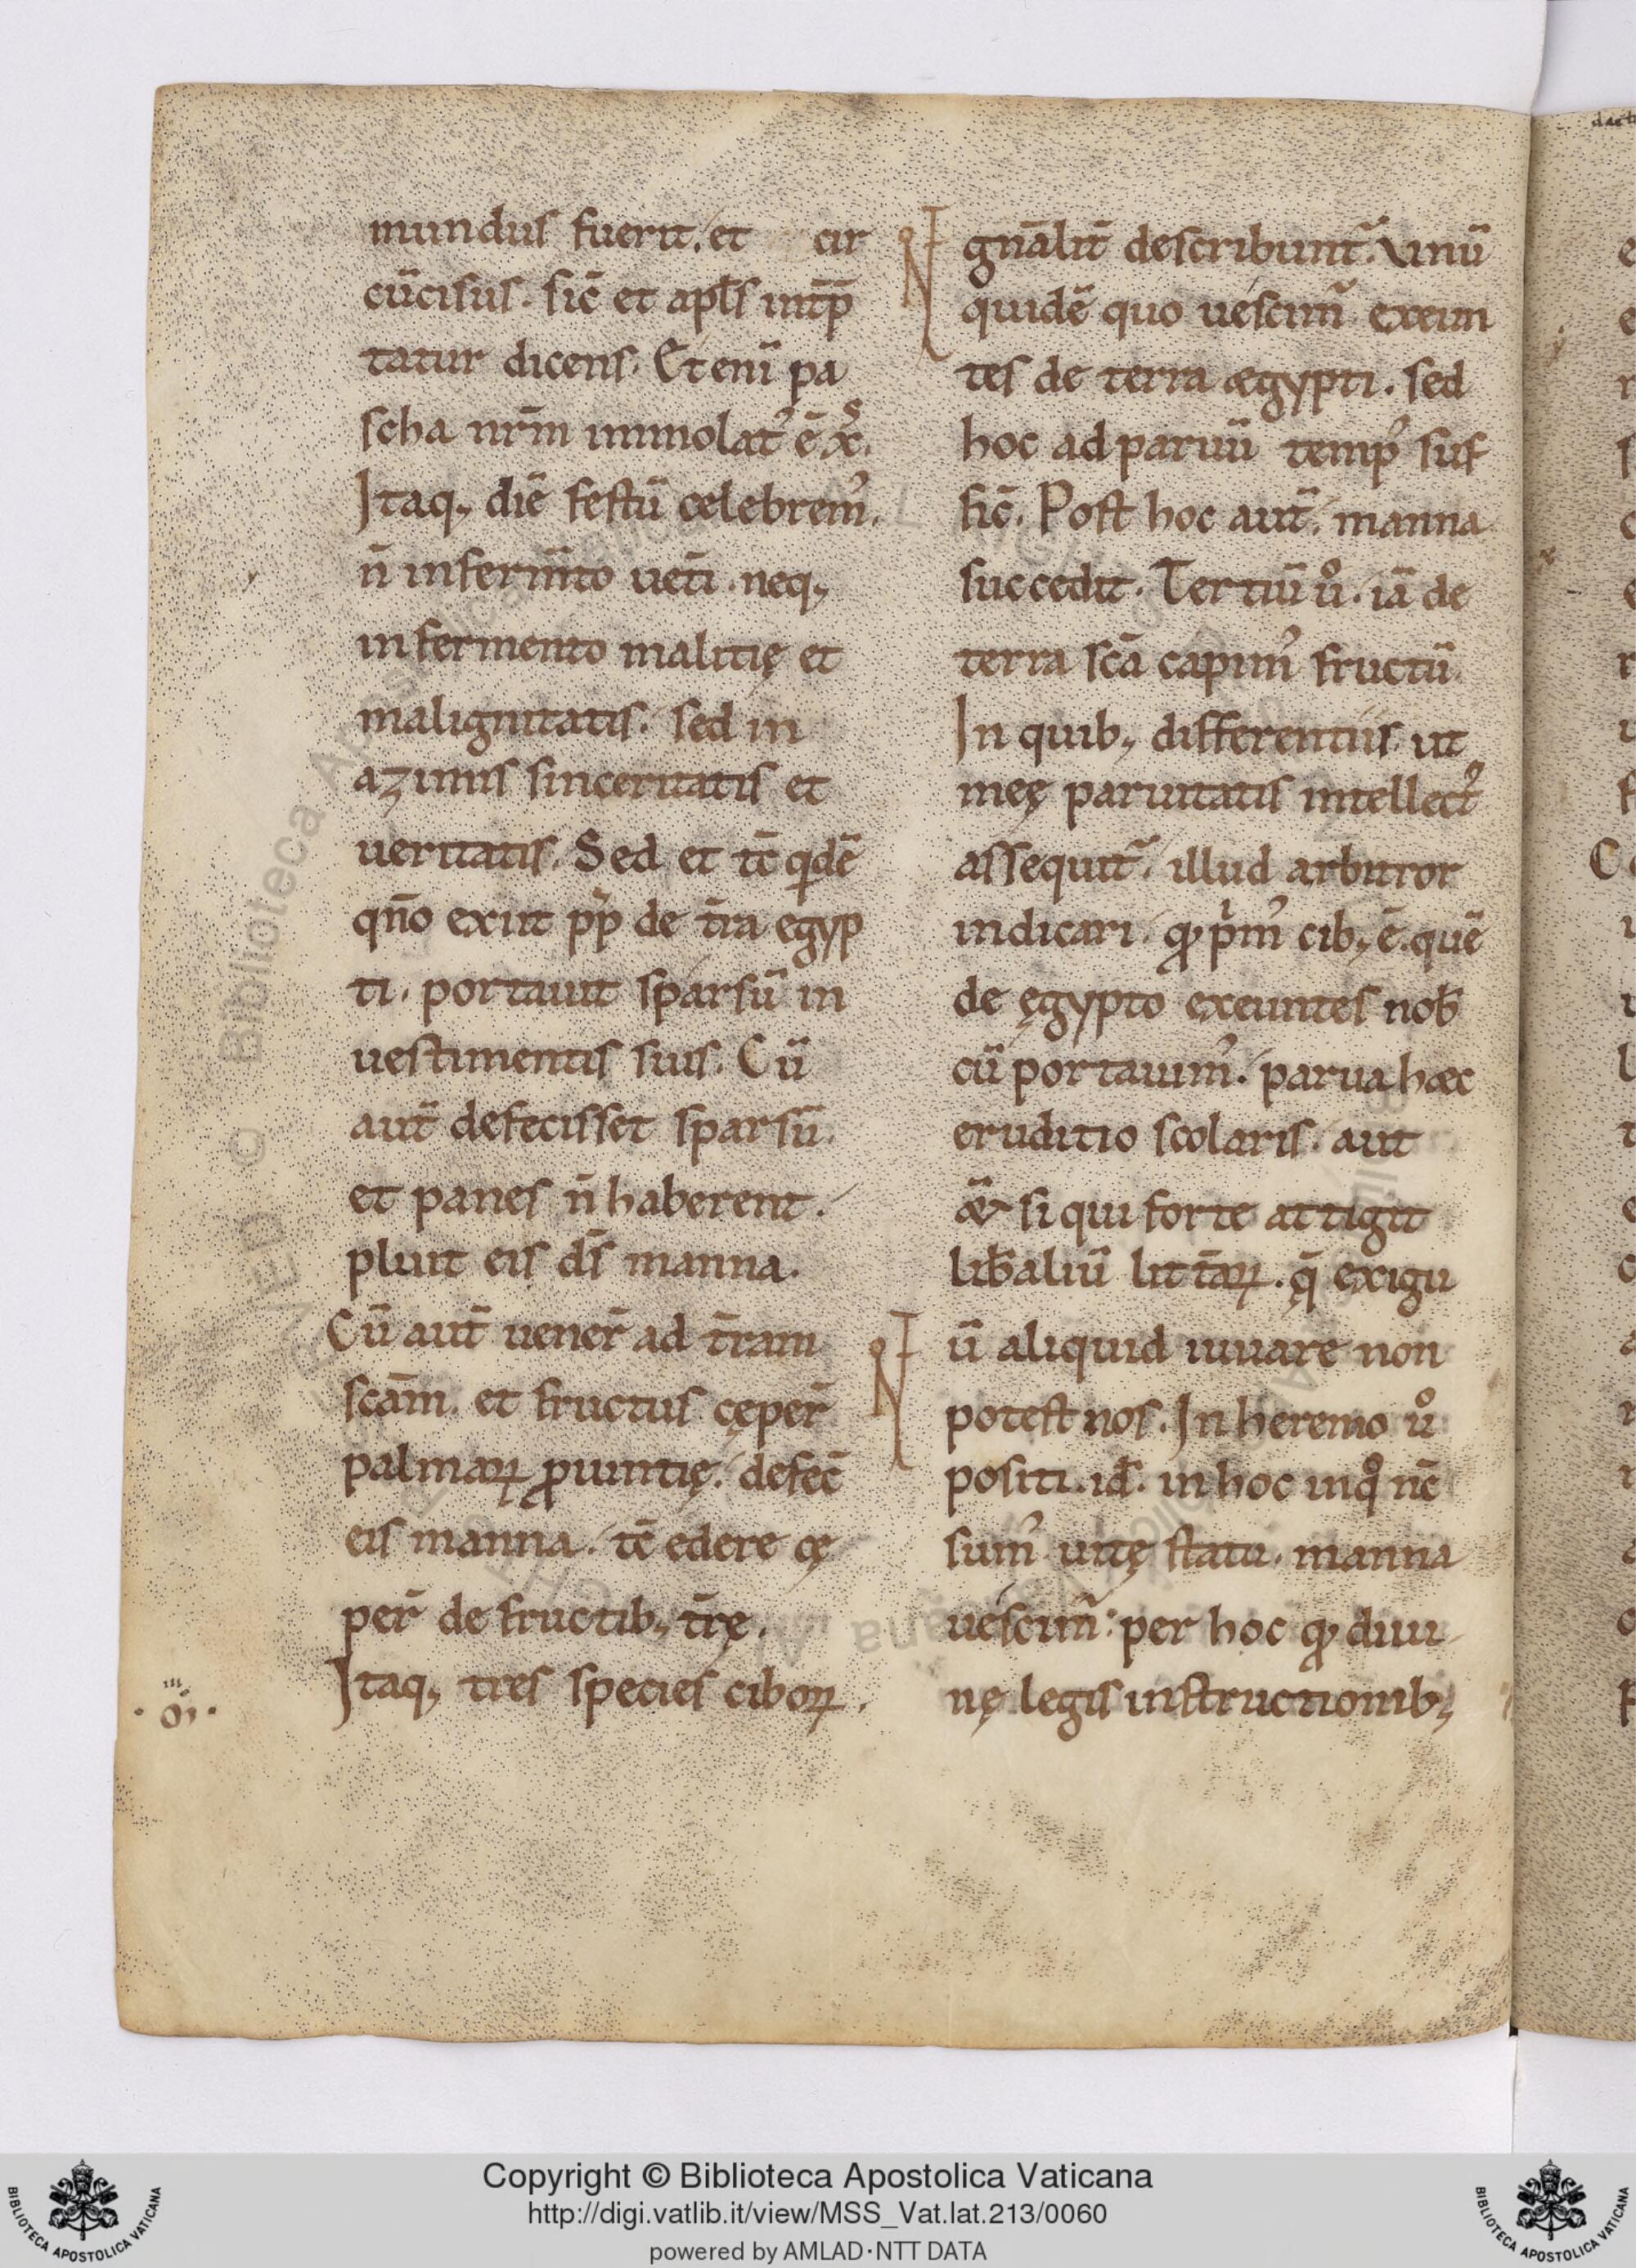 mundus fuerit. et cir
cūcisus. sic̄ et apl̄s int̄p̄
tatur dicens. Et eni̅ pa
scha nr̄m immolatˀ ē xp̄s.
Itaq; diē festū celebremˀ.
n̄ in ferm̄to uet̄i. neq;
in fermento malitię et
malignitatis. sed in
azimis sinceritatis et
ueritatis. Sed et tc̄ qdē
qn̄o exiit pp̄ de t̄ra egyp
ti. portauit sparsū in
uestimentis suis. Cū
aut̄ defecisset sparsū.
et panes n̄ haberent.
pluit eis d̄s manna.
Cū aut̄ uener̄ ad t̄ram
sc̄am. et fructus cęper̄
palmaꝝ ꝓuintię. defec̄
eis manna. tc̄ edere cę
per̄ de fructib; t̄rę.
Itaq; tres species ciboꝝ.
gn̄alit̄ describunt̄. Vnū
quidē quo uescim̄ exeun
tes de terra ægypti. sed
hoc ad paruū tempˀ suf
fic̄. Post hoc aut̄. manna
succedit. Tertiū uͦ. iā de
terra sc̄a capimˀ fructū.
In quib; differentiis. ut
meę paruitatis intellectˀ
assequit̄. illud arbitror
indicari. ꝙ pⁱmˀ cib; ē. quē
de ęgypto exeuntes nob̄
cū portauimˀ. parua hæc
eruditio scolaris. aut
ǣ si qui forte attigit
lib̄aliū litt̄aꝝ. q̄ exigu
ū aliquid iuuare non
potest nos. In heremo uͦ
positi. id̄. in hoc in qͦ nc̄
sumˀ uitę statu. manna
uescim̄: per hoc ꝙ diui
nę legis instructionib;
Copyright © Biblioteca Apostolica Vaticana
http://digi.vatlib.it/view/MSS_Vat.lat.213/0060
powered by AMLAD·NTT DATA